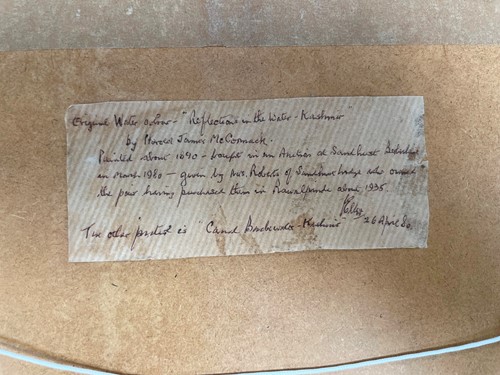 Original Water colour - "Reflections in the Water - Kashmir"
by Harold James McCormack.
Painted about 1890 - bought in an Auction at Sandhurst
in March 1980 - given by Mrs. Roberts of Sandhurst Lodge who owned
the pair having purchased them in Rawalpindi about 1935.
26 April 80.
The other is "Canal - Kashmir"